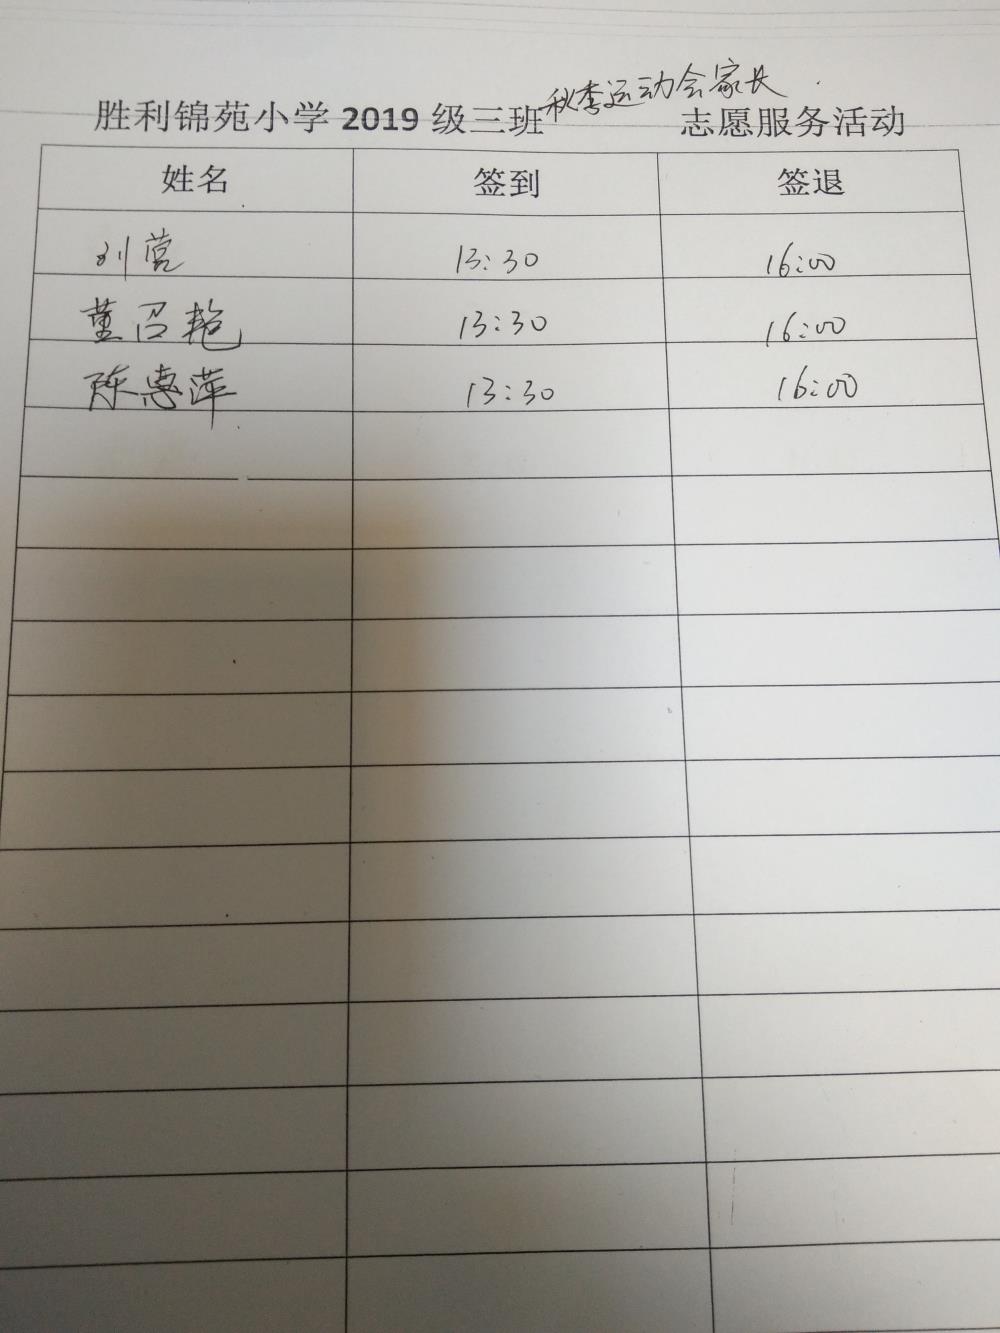 胜利锦苑小学 2019 级三班 秋季运动会家长 志愿服务活动
姓名 签到 签退
刘营 13:30 16:00
董召艳 13:30 16:00
陈惠萍 13:30 16:00